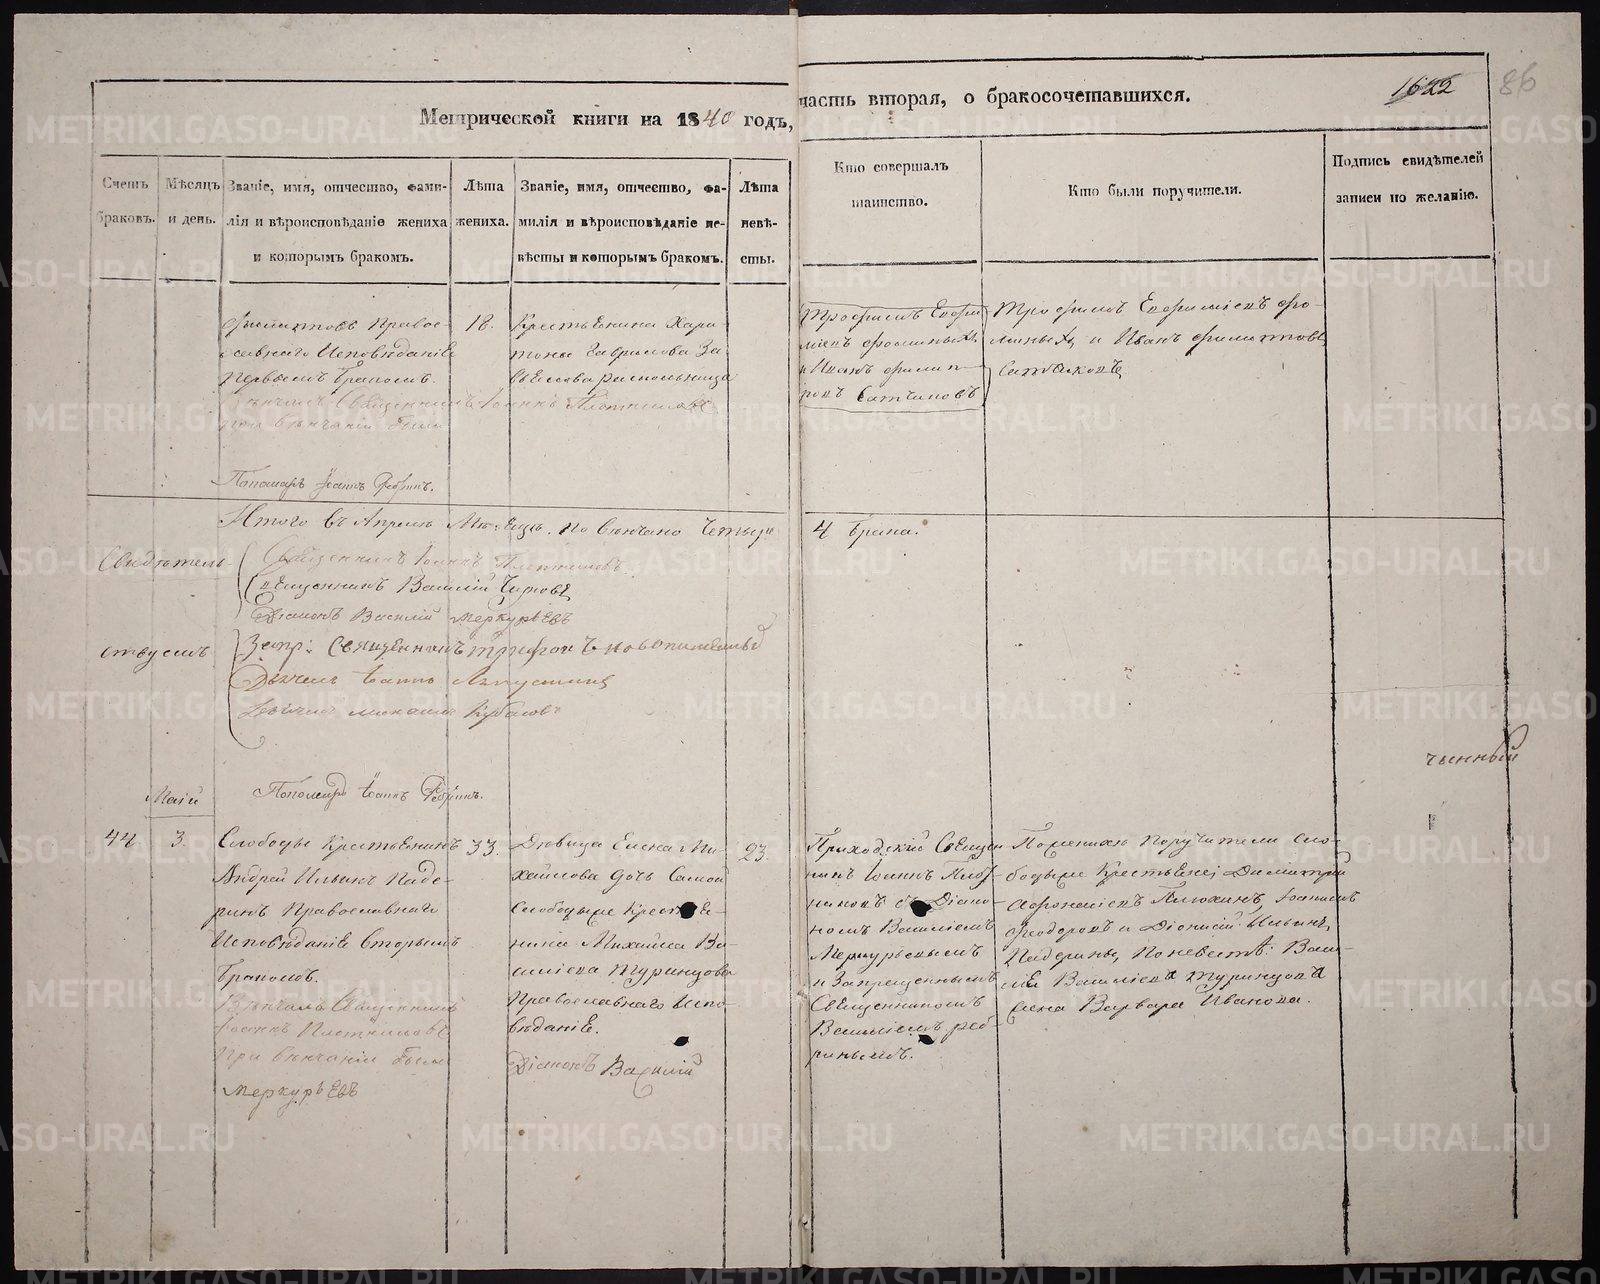 Метрической книги на 1840 годъ,
часть вторая, о бракосочетавшихся.
1622
86
Счетъ
браковъ.
Мѣсяцъ
и день.
Званіе, имя, отчество, фами-
лія и вѣроисповѣданіе жениха
и которымъ бракомъ.
Лѣта
жениха.
Званіе, имя, отчество, фа-
милія и вѣроисповѣданіе не-
вѣсты и которымъ бракомъ.
Лѣта
невѣ-
сты.
Кто совершалъ
таинство.
Кто были поручители.
Подпись свидѣтелей
записи по желанію.
Филиповъ Правос-
лавнаго Исповѣданіе
Первымъ Бракомъ.
Вѣнчалъ Священникъ Іоаннъ Плотниковъ
при вѣнчаніи былъ
Пономарь Іоаннъ
18.
Крестьянина Хари-
тона Гаврилова За-
Трофимъ Ефи-
и Иванъ Филип-
Трофимъ
и Иванъ Филиповъ
Итого въ Апрелѣ Мѣсяцѣ. Повѣнчано Четыре
4 брака.
Свидѣтель-
ствуемъ
Священникъ Іоаннъ Плотниковъ
Священникъ Василій
Діаконъ Василій Меркурьевъ
Запр: Священникъ Трифонъ
Дьячекъ Іоаннъ
Дьячекъ
Пономарь Іоаннъ
чынный
Маій
44
3.
Слободы Крестьянинъ
Андрей Ильинъ Паде-
ринъ Православнаго
Исповѣданіе Вторымъ
Бракомъ.
Вѣнчалъ Священникъ
Іоаннъ Плотниковъ
При вѣнчаніи былъ
Меркурьевъ
33.
Дѣвица Елена Ми-
хайлова дочь Самой
Слободыже Крестья-
нина Михайла Ва-
силіева Туринцова
Православнаго Испо-
вѣданіе.
Діаконъ Василій
23.
Приходскій Священ-
никъ Іоаннъ Плот-
никовъ съ Діако-
номъ Василіемъ
Меркурьевымъ
и Запрещеннымъ
Священникомъ
Василіемъ Реб-
ринымъ.
По женихѣ Поручители Сло-
бодыже Крестьяне Димитрій
Феодоровъ и Діонисій Ильинъ
Падерины, По невестѣ: Васи-
лій Василіевъ Туринцовъ
Варвара Иванова.
METRIKI.GASO-URAL.RU